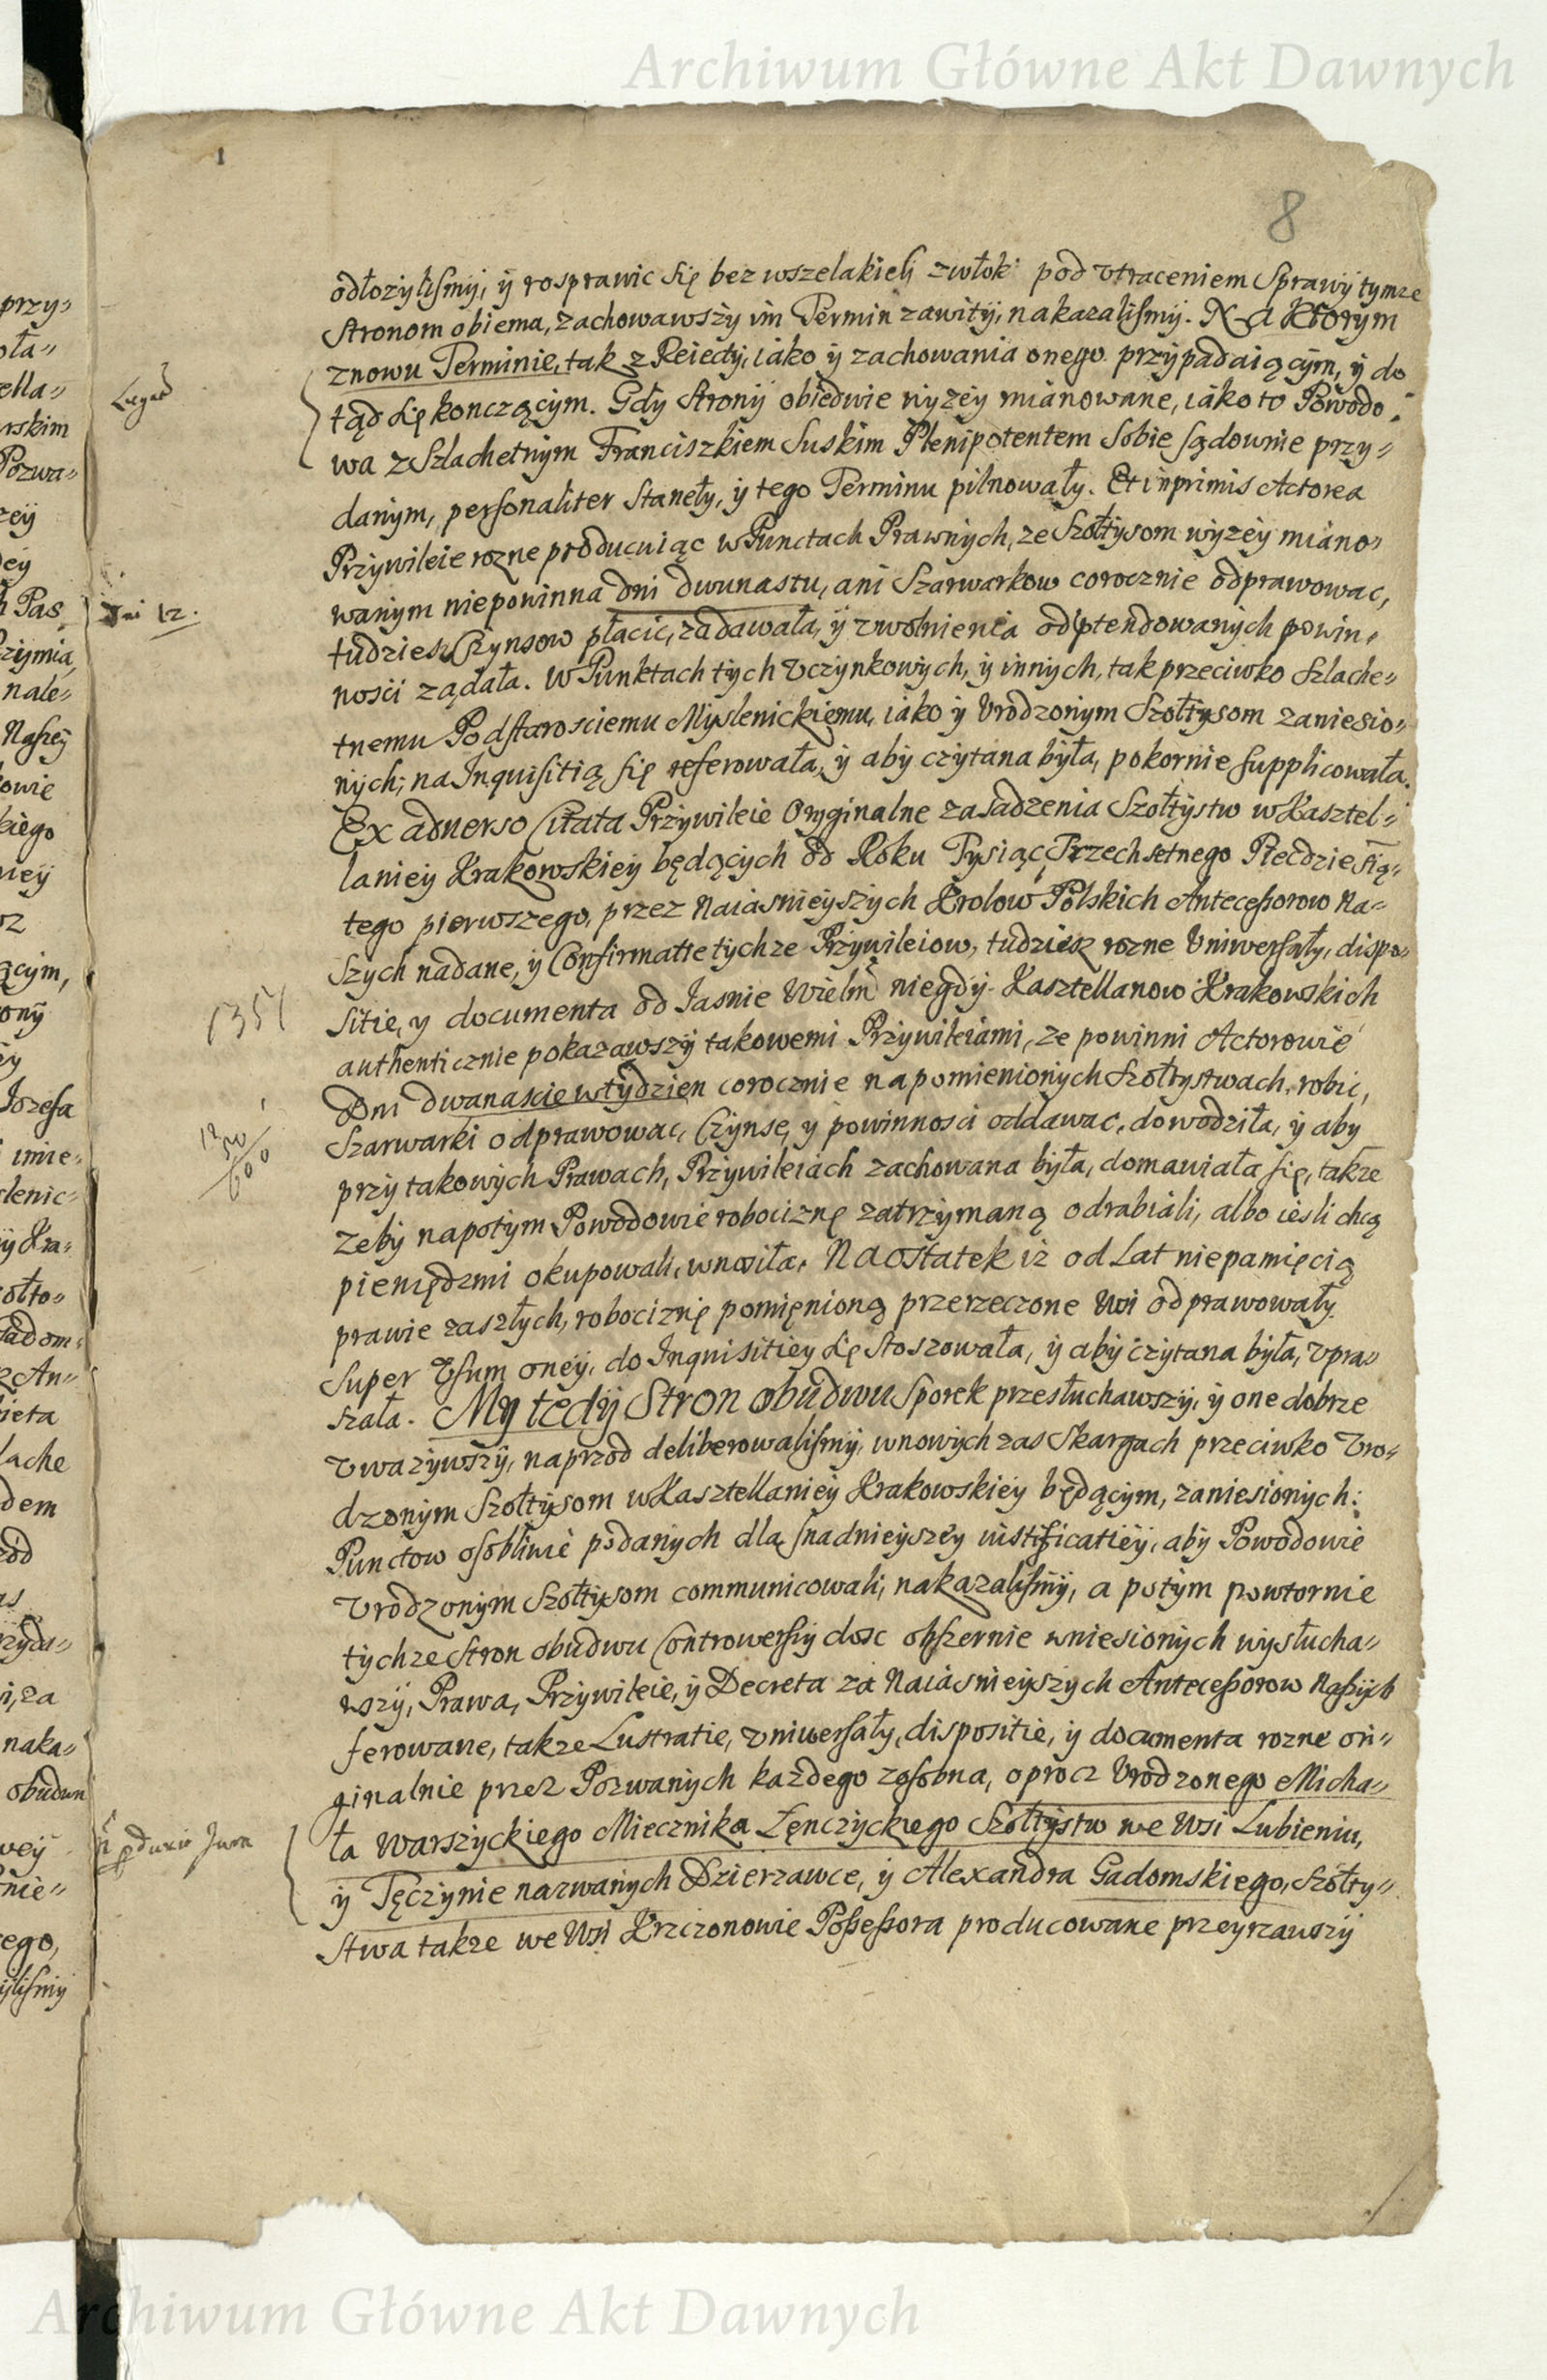 Archiwum Główne Akt Dawnych
8
odłożylismy, y rosprawic się bez wszelakich zwłok pod utraceniem Sprawy tymze
Stronom obiema, zachowawszy im Termin zawity, nakazalismy. Na Ktorym
znowu Terminie, tak z Reiecty, iako y zachowania onego przypadaiącym, y do
tąd się konczącym. Gdy Strony obiedwie wyzey mianowane, iako to Powodo-
wa z Szlachetnym Franciszkiem Suskim Plenipotentem Sobie sądownie przy-
danym, personaliter Stanęły, y tego Terminu pilnowały. Et inprimis Actorea
Przywileie rozne producuiąc w Punctach Prawnych, ze Szołtysom wyzey miano-
wanym niepowinna dni dwunastu, ani Szarwarkow corocznie odprawowac,
dni 12.
tudziesz Czynsow płacic, zadawała, y uwolnienia od ptendowanych powin-
nosci ządała. W Punktach tych Uczynkowych, y innych, tak przeciwko Szlache-
tnemu Podstarosciemu Myslenickiemu, iako y Urodzonym Szołtysom zaniesio-
nych; na Inquisitią się referowała, y aby czytana była, pokornie supplicowała.
Ex adverso Citata Przywileie Oryginalne zasadzenia Szołtystw w Kasztel-
laniey Krakowskiey będących od Roku Tysiąc Trzechsetnego Piecdziesią-
tego pierwszego, przez Naiasnieyszych Krolow Polskich Antecessorow Na-
szych nadane, y Confirmatie tychze Przywileiow, tudziesz rozne Uniwersały, dispo-
sitie, y documenta od Jasnie Wielm niegdy Kasztellanow Krakowskich
1351
authenticznie pokazawszy takowemi Przywileiami, ze powinni Actorowie
Dni dwanascie w tydzien corocznie na pomienionych Szołtystwach robic,
Szarwarki odprawowac, Czynse, y powinnosci oddawac, dowodziła, y aby
12
50
600
przy takowych Prawach, Przywileiach zachowana była, domawiała się, takze
zeby napotym Powodowie robociznę zatrzymaną odrabiali, albo iesli chcą
pieniędzmi okupowali, wnosiła. Na ostatek iz od Lat niepamięcią
prawie zaszłych, robociznę pomięnioną przerzeczone Wsi odprawowały.
Super Usum oney, do Inquisitiey się stoszowała, y aby czytana była, upra-
szała. My tedy Stron obudwu Sporek przesłuchawszy, y one dobrze
uwazywszy, naprzod deliberowalismy, w nowych zas Skargach przeciwko Uro-
dzonym Szołtysom w Kasztellaniey Krakowskiey będącym, zaniesionych:
Punctow osobliwie podanych dla snadnieyszey iustificatiey, aby Powodowie
Urodzonym Szołtysom communicowali, nakazalismy, a potym powtornie
tychze Stron obudwu Controwersiy dosc obszernie wniesionych wysłucha-
wszy, Prawa, Przywileie, y Decreta za Naiasnieyszych Antecessorow Naszych
ferowane, takze Lustratie, uniwersały, dispositie, y documenta rozne ori-
ginalnie przez Pozwanych kazdego zosobna, oprocz Urodzonego Micha-
ła Warszyckiego Miecznika Łęnczyckiego Szołtystw we Wsi Lubieniu,
y Tęczynie nazwanych Dzierzawce, y Alexandra Gadomskiego, Szołty-
stwa takze we Wsi Krzczonowie Possessora producowane przeyrzawszy
Archiwum Główne Akt Dawnych